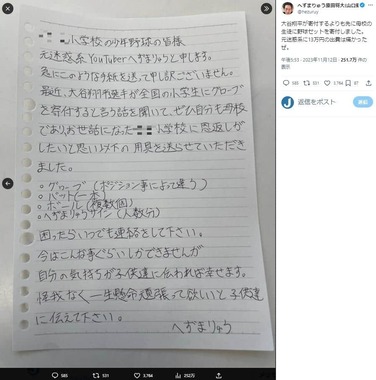 小学校の少年野球の皆様
元迷惑系YouTuberへずまりゅうと申します。
急にこのような手紙を送って申し訳ございません。
最近、大谷翔平選手が全国の小学生にグローブ
を寄付すると言う話を聞いて、ぜひ自分も母校
でありお世話になった 小学校に恩返しが
したいと思い以下の用具を送らせていただき
ました。
○グローブ(ポジション事によって違う)
○バット(一本)
○ボール(複数個)
○へずまりゅうサイン(人数分)
困ったらいつでも連絡をして下さい。
今はこんな事ぐらいしかできませんが
自分の気持ちが子供達に伝われば幸せます。
怪我なく一生懸命頑張って欲しいと子供達
に伝えて下さい。
へずまりゅう
585
531
3,784
252万
へずまりゅう
@hezuruy
大谷翔平が寄付するよりも先に母校の
生徒に野球セットを寄付しました。
元迷惑系に13万円の出費は痛かった
ぜ。
午後5:53 · 2023年11月12日 · 251.7万 件
の表示
585
531
3,784
131
返信をポスト
返信